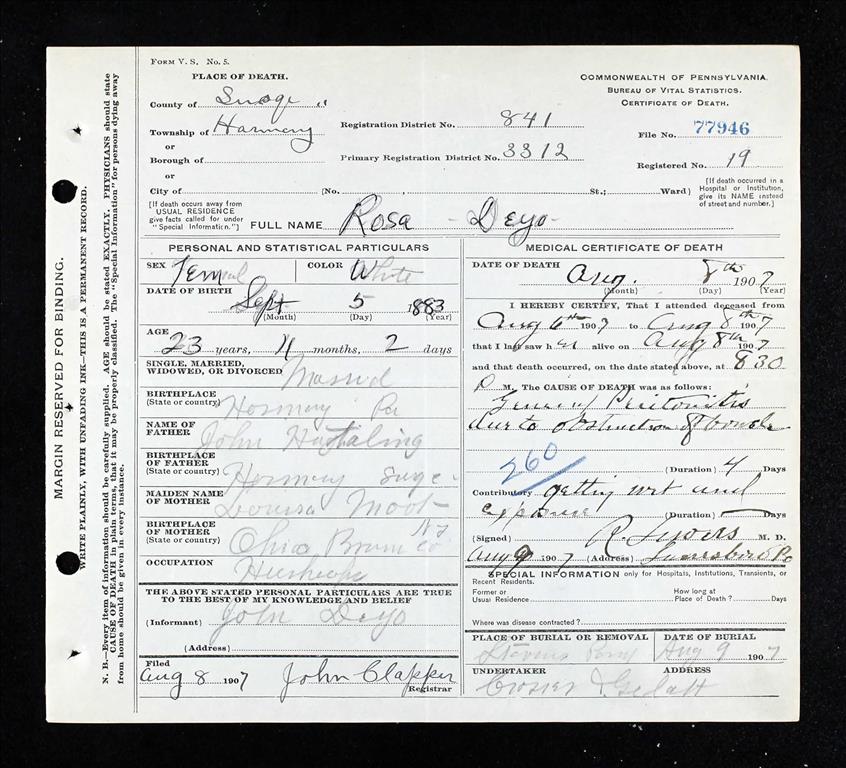 FORM V. S. No. 5.
PLACE OF DEATH.
County of
Township of Harmony
or
Borough of
or
City of
[If death occurs away from
USUAL RESIDENCE
give facts called for under
"Special Information."]
COMMONWEALTH OF PENNSYLVANIA
BUREAU OF VITAL STATISTICS.
CERTIFICATE OF DEATH.
Registration District No. 841
File No. 77946
Primary Registration District No. 3312
Registered No. 19
(No. , St.; Ward)
[If death occurred in a
Hospital or Institution,
give its NAME instead
of street and number.]
FULL NAME Rosa Deyo
MARGIN RESERVED FOR BINDING.
WRITE PLAINLY, WITH UNFADING INK—THIS IS A PERMANENT RECORD.
N. B.—Every item of information should be carefully supplied. AGE should be stated EXACTLY. PHYSICIANS should state
CAUSE OF DEATH in plain terms, that it may be properly classified. The "Special Information" for persons dying away
from home should be given in every instance.
PERSONAL AND STATISTICAL PARTICULARS
SEX COLOR White
DATE OF BIRTH Sept 5 1883
(Month) (Day) (Year)
AGE
23 years, 11 months, 2 days
SINGLE, MARRIED,
WIDOWED, OR DIVORCED
BIRTHPLACE
(State or country) Pa
NAME OF
FATHER John
BIRTHPLACE
OF FATHER
(State or country)
MAIDEN NAME
OF MOTHER Louisa
BIRTHPLACE
OF MOTHER
(State or country) NY
OCCUPATION
THE ABOVE STATED PERSONAL PARTICULARS ARE TRUE
TO THE BEST OF MY KNOWLEDGE AND BELIEF
(Informant) John Deyo
(Address)
Filed
Aug 8 1907 John Clapper
Registrar
MEDICAL CERTIFICATE OF DEATH
DATE OF DEATH Aug. 8th 1907
(Month) (Day) (Year)
I HEREBY CERTIFY, That I attended deceased from
Aug 6th 1907 to Aug 8th 1907
that I last saw her alive on Aug 8th 1907
and that death occurred, on the date stated above, at 830
P M. The CAUSE OF DEATH was as follows:
General Peritonitis
due to obstruction of bowels
260
(Duration) 4 Days
Contributory getting wet and
exposure (Duration) Days
(Signed) M. D.
Aug 9 1907 (Address) Pa
SPECIAL INFORMATION only for Hospitals, Institutions, Transients, or
Recent Residents.
Former or
Usual Residence
How long at
Place of Death? Days
Where was disease contracted?
PLACE OF BURIAL OR REMOVAL
DATE OF BURIAL
Aug 9 1907
UNDERTAKER
ADDRESS